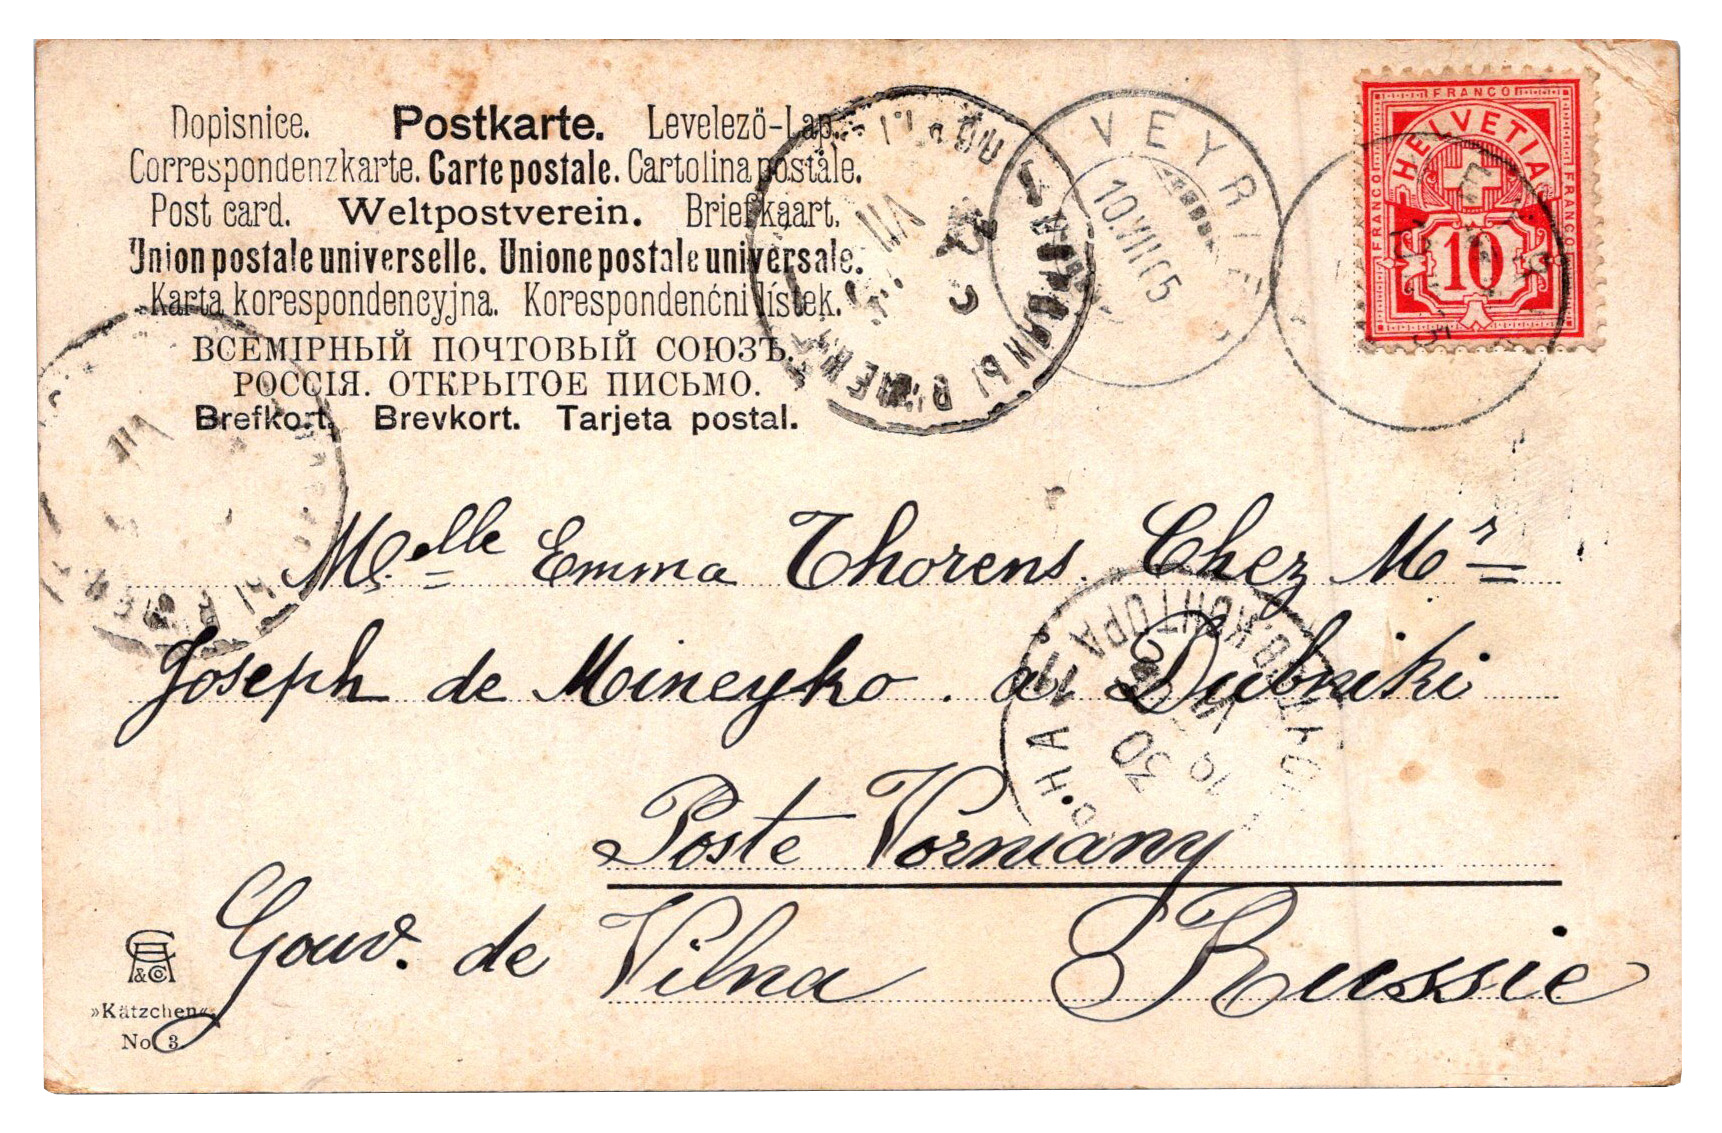 Dopisnice. Postkarte. Levelező-Lap.
Correspondenzkarte. Carte postale. Cartolina postale.
Post card. Weltpostverein. Briefkaart.
Union postale universelle. Unione postale universale.
Karta korespondencyjna. Korespondenční lístek.
ВСЕМІРНЫЙ ПОЧТОВЫЙ СОЮЗЪ.
РОССІЯ. ОТКРЫТОЕ ПИСЬМО.
Brefkort. Brevkort. Tarjeta postal.
VEYRIER
10.VII.05
FRANCO
HELVETIA
FRANCO
FRANCO
10
VII
VII
Melle Emma Thorens. Chez Mr
Joseph de Mineyko. a Dubniki
КОНТОРА
30
Poste Vorniany
Gouv. de Vilna Russie
A & Co
»Kätzchen«
No. 3.